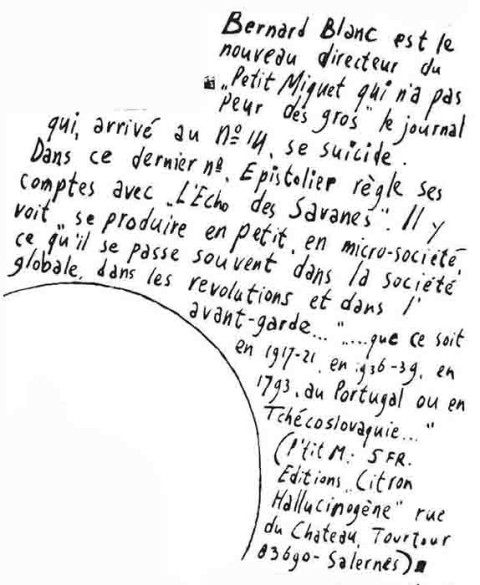 Bernard Blanc est le
nouveau directeur du
„Petit Miguet qui n'a pas
peur des gros" le journal
qui, arrivé au nº 14, se suicide.
Dans ce dernier nº, Epistolier règle ses
comptes avec „L'Echo des Savanes". Il y
voit „se produire en petit, en micro-société,
ce qu'il se passe souvent dans la société
globale, dans les revolutions et dans l'
avant-garde..." "...que ce soit
en 1917-21, en 1936-39, en
1793, au Portugal ou en
Tchécoslovaquie..."
(P'tit M: 5 FR.
Editions „Citron
Hallucinogène" rue
du Chateau, Tourtour
83690-Salernes)